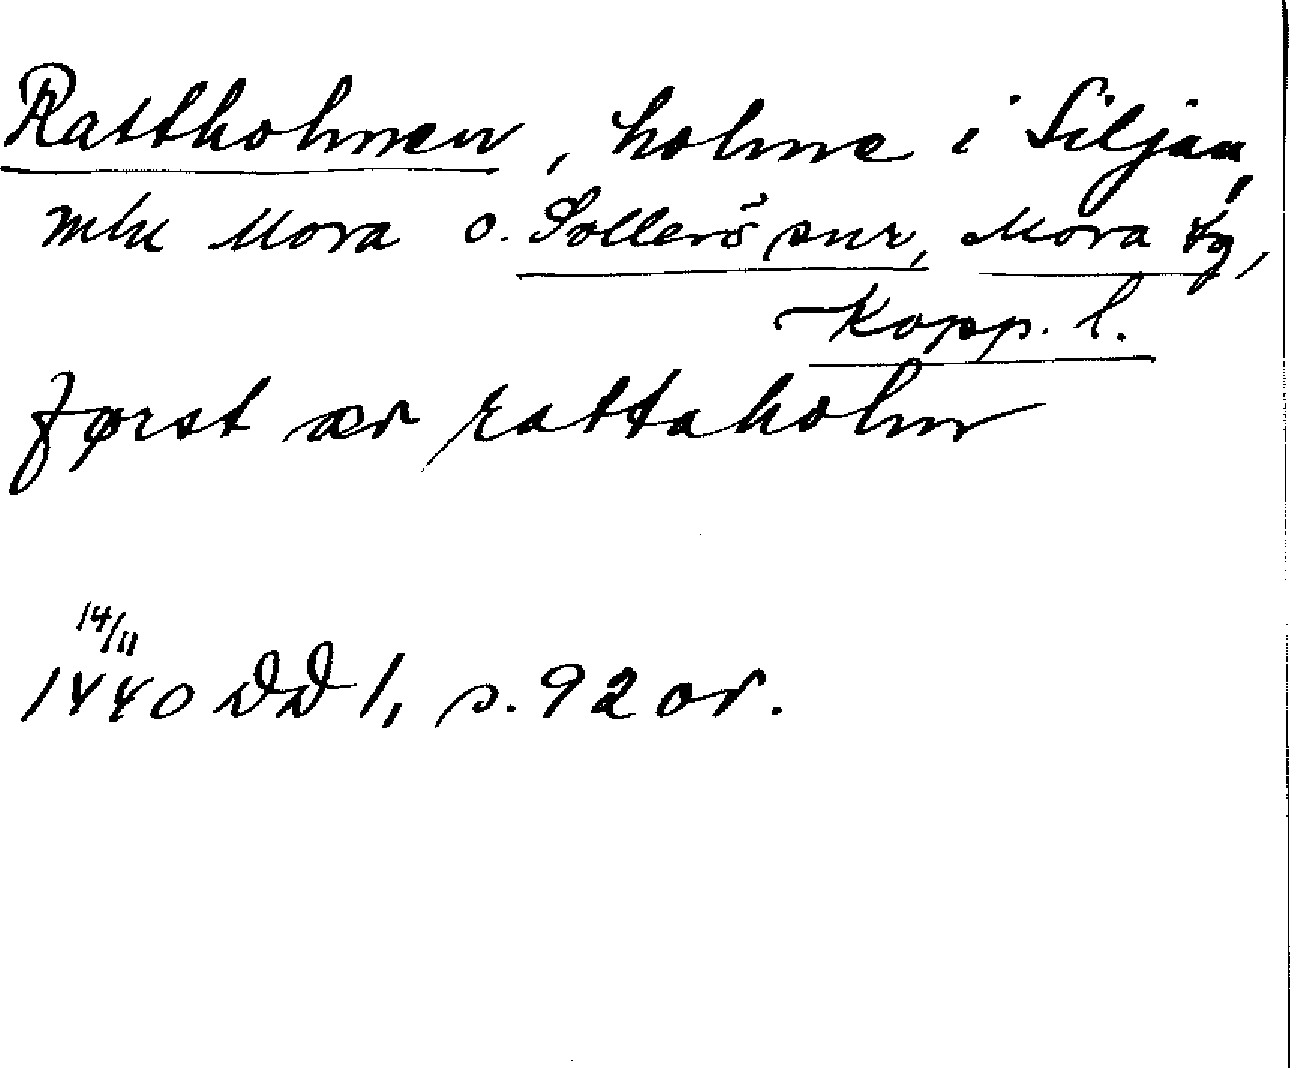 Rattholmen, holme i Siljan,
mln Mora o. Sollerö snr, Mora tg,
Kopp. l.
først ær rattaholm
14/11
1440 DD 1, s. 92 or.